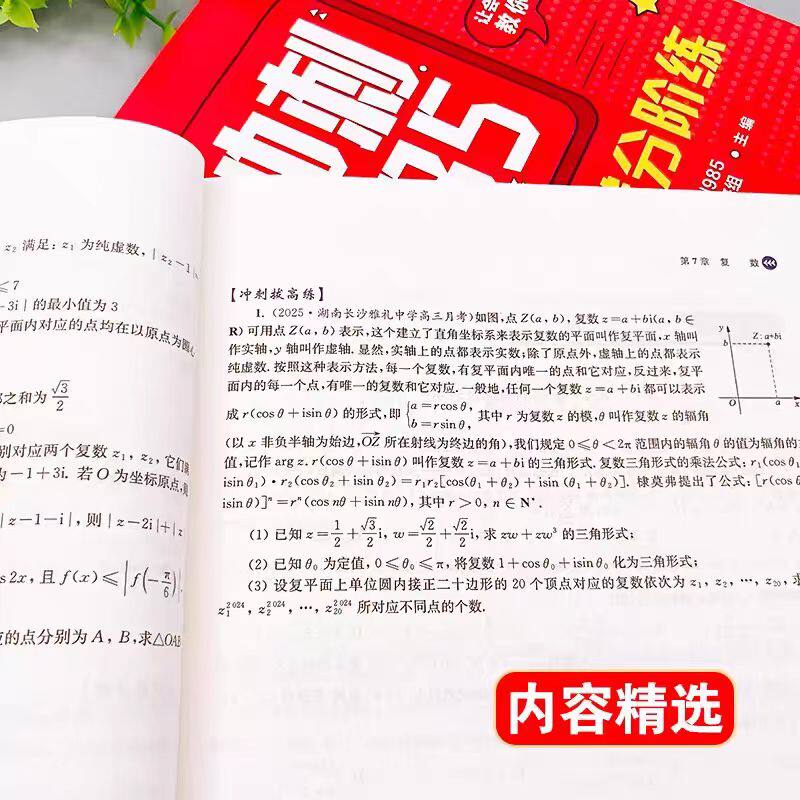 让
教你
冲刺
985
分阶练
985
组 ● 主编
z₂ 满足：z₁ 为纯虚数，|z₂－1|
≤7
－3i|的最小值为3
平面内对应的点均在以原点为圆心
之和为 √3/2
=0
别对应两个复数 z₁，z₂，它们
为－1＋3i. 若 O 为坐标原点，则
|z－1－i|，则|z－2i|＋|z
s 2x，且 f(x)≤|f(－π/6)|
的点分别为 A，B，求△OAB
第7章 复 数
【冲刺拔高练】
1. (2025·湖南长沙雅礼中学高三月考)如图，点 Z(a，b)，复数 z=a＋bi(a，b∈
R)可用点 Z(a，b)表示，这个建立了直角坐标系来表示复数的平面叫作复平面，x 轴叫
作实轴，y 轴叫作虚轴. 显然，实轴上的点都表示实数；除了原点外，虚轴上的点都表示
纯虚数. 按照这种表示方法，每一个复数，有复平面内唯一的点和它对应，反过来，复平
面内的每一个点，有唯一的复数和它对应. 一般地，任何一个复数 z=a＋bi 都可以表示
成 r(cos θ＋isin θ)的形式，即 {a=rcos θ，b=rsin θ， 其中 r 为复数 z 的模，θ 叫作复数 z 的辐角
(以 x 非负半轴为始边，OZ→ 所在射线为终边的角)，我们规定 0≤θ＜2π 范围内的辐角 θ 的值为辐角的
值，记作 arg z. r(cos θ＋isin θ)叫作复数 z=a＋bi 的三角形式. 复数三角形式的乘法公式：r₁(cos θ₁
isin θ₁)·r₂(cos θ₂＋isin θ₂)=r₁r₂[cos(θ₁＋θ₂)＋isin(θ₁＋θ₂)]. 棣莫弗提出了公式：[r(cos
isin θ)]ⁿ=rⁿ(cos nθ＋isin nθ)，其中 r＞0，n∈N*.
(1) 已知 z=1/2＋√3/2 i，w=√2/2＋√2/2 i，求 zw＋zw³ 的三角形式；
(2) 已知 θ₀ 为定值，0≤θ₀≤π，将复数 1＋cos θ₀＋isin θ₀ 化为三角形式；
(3) 设复平面上单位圆内接正二十边形的 20 个顶点对应的复数依次为 z₁，z₂，…，z₂₀，求
z₁²⁰²⁴，z₂²⁰²⁴，…，z₂₀²⁰²⁴ 所对应不同点的个数.
y
b
Z: a+bi
O
a
x
内容精选